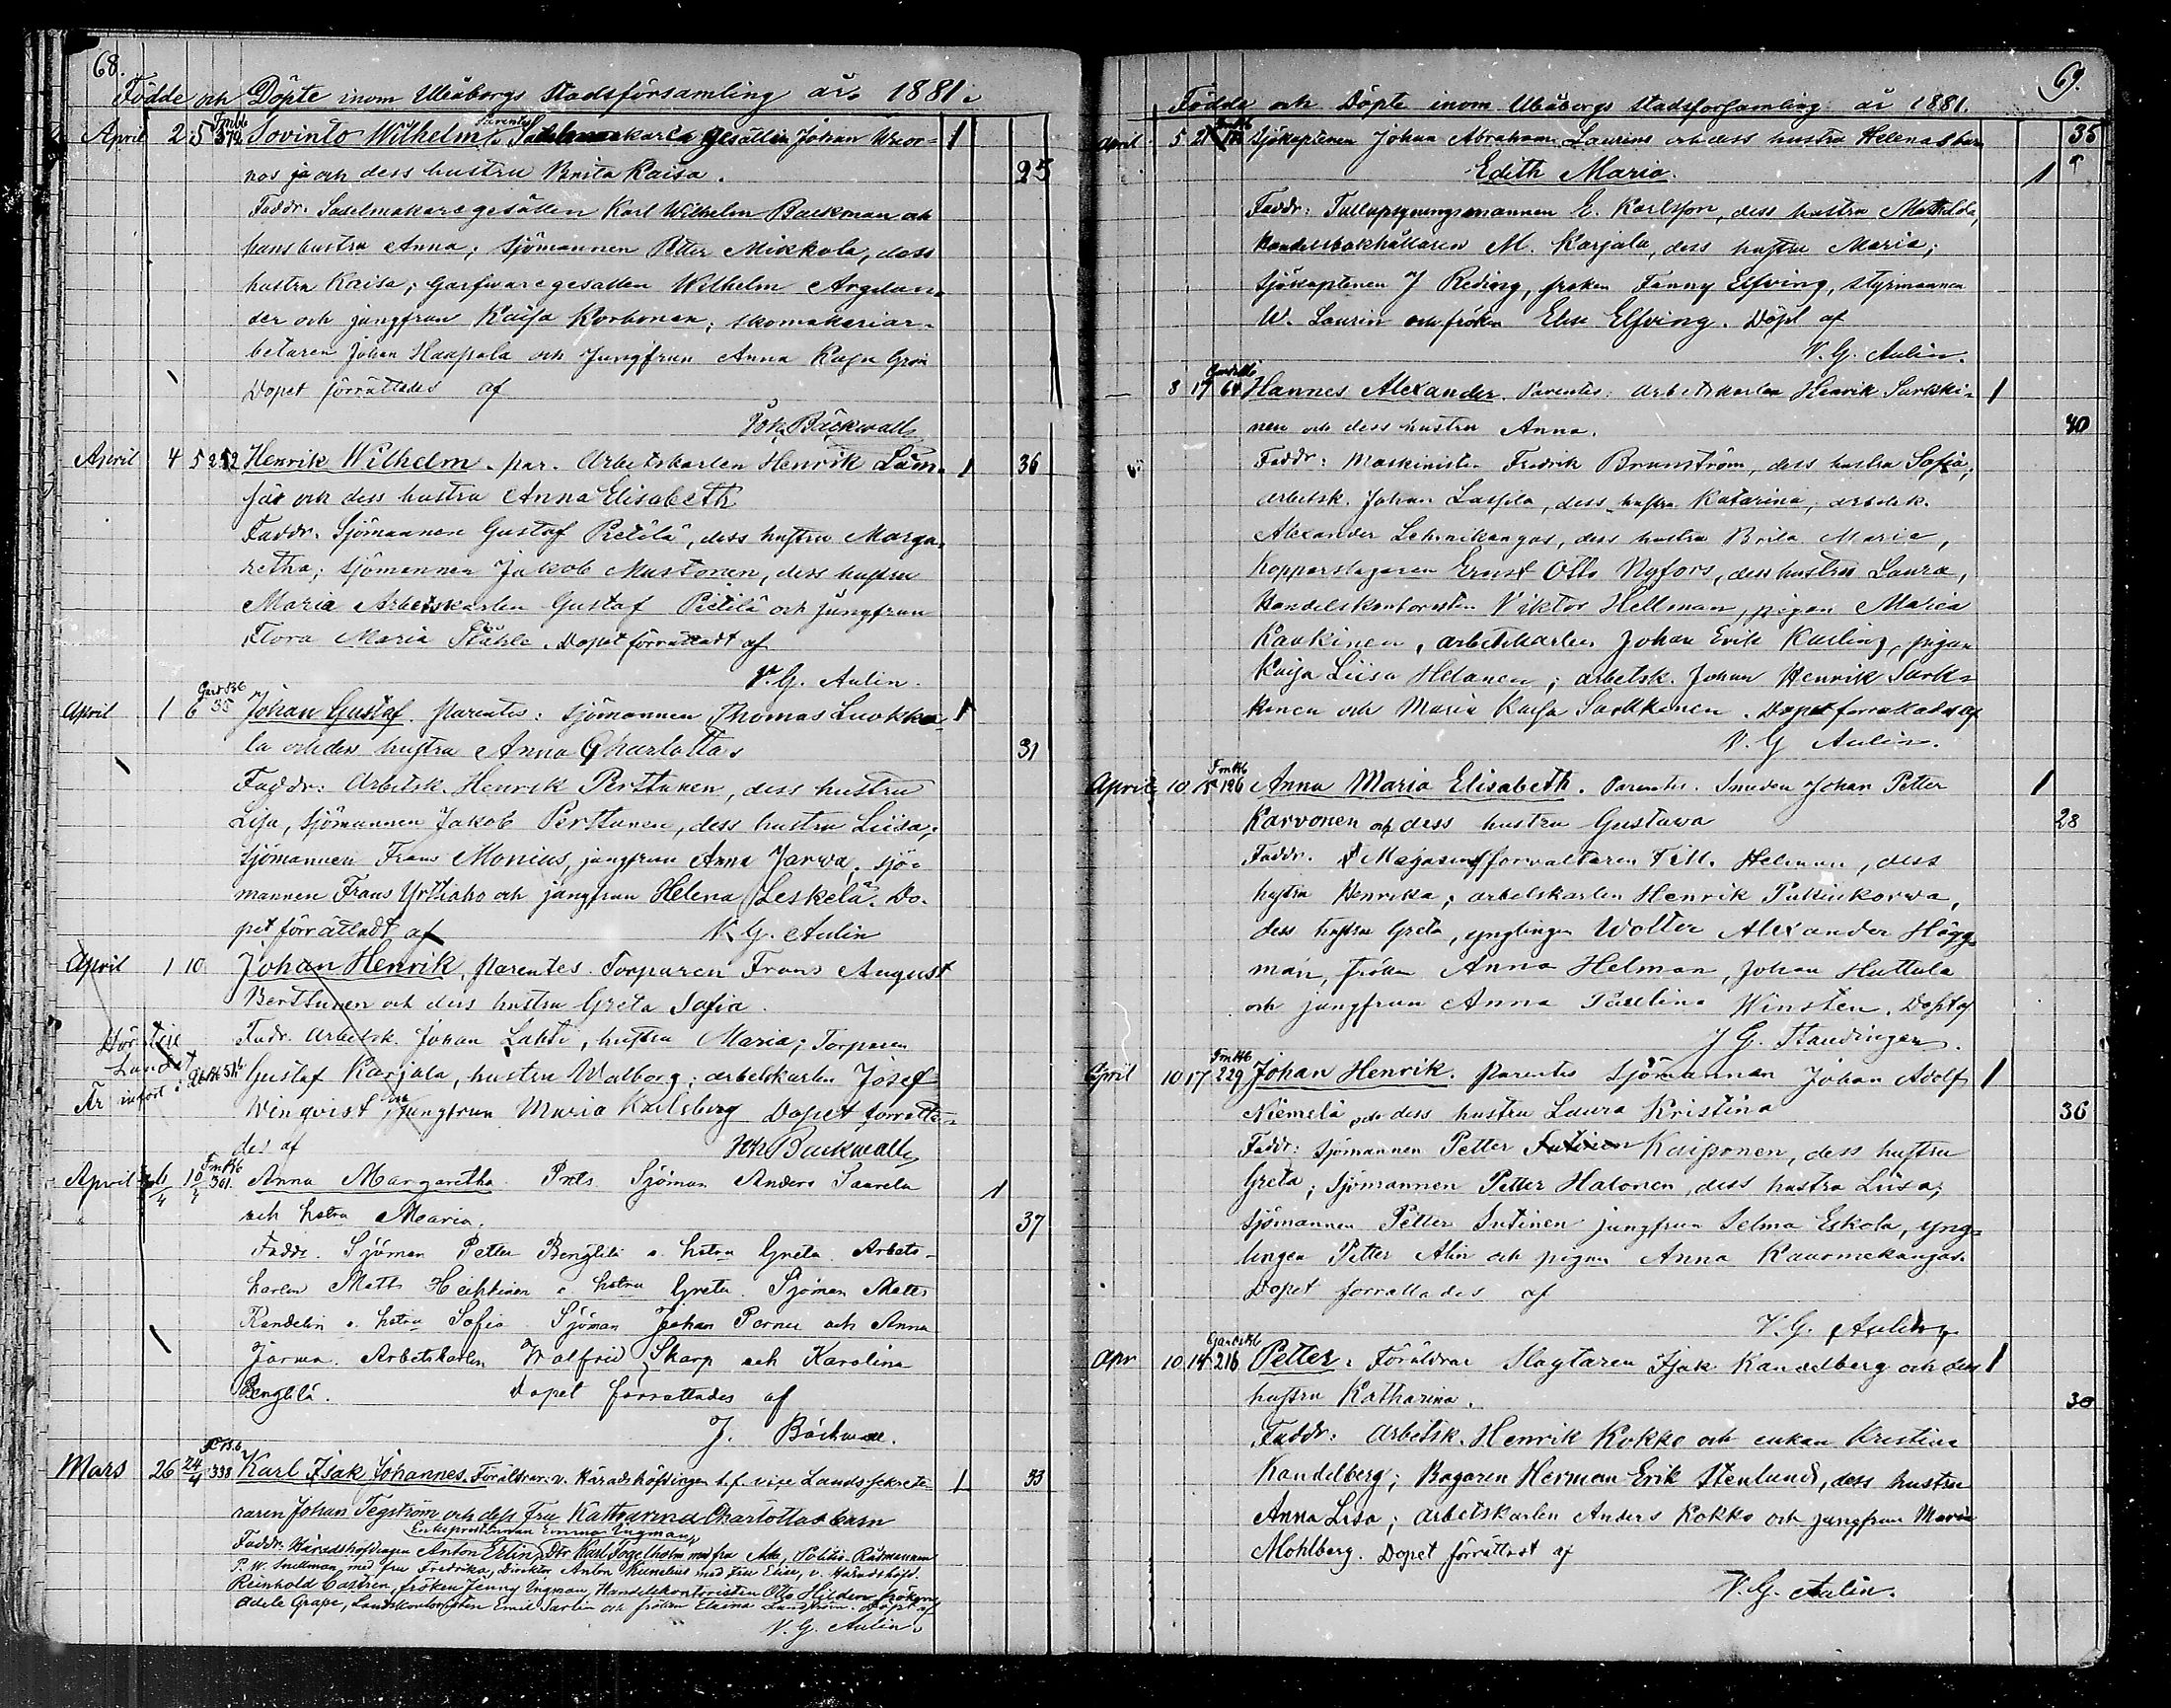 68.
Födde och Döpte inom Uleåborgs Stadsförsamling år 1881.
April 2 5 379 Sovinto Wilhelm. Parentes Sadelmakare gesällen Johan Wuor-
nos ja och dess hustru Brita Kaisa. 25
Faddr. Sadelmakaregesällen Karl Wilhelm Backman och
hans hustru Anna; Sjömannen Petter Mikkola, dess
hustru Kaisa; Garfvaregesällen Wilhelm Argelan-
der och jungfrun Kaisa Korhonen; skomakeriar-
betaren Johan Haapala och Jungfrun Anna Kajsa Grön
Dopet förrättades af
Joh. Bäckwall
April 4 5 252 Henrik Wilhelm. par. Arbetskarlen Henrik Läm- 1 36
sä och dess hustru Anna Elisabeth
Faddr. Sjömannen Gustaf Pietilä, dess hustru Marga-
retha; Sjömannen Jakob Mustonen, dess hustru
Maria Arbetskarlen Gustaf Pietilä och jungfrun
Flora Maria Ståhle. Dopet förrättadt af
V. G. Aulin.
April 1 6 35 Johan Gustaf. Parentes: Sjömannen Thomas Luokka- 1
la och dess hustru Anna Charlotta. 31
Faddr: Arbetsk. Henrik Perttunen, dess hustru
Lisa, Sjömannen Jakob Perttunen, dess hustru Liisa;
Sjömannen Frans Monius, jungfrun Anna Jarwa; sjö-
mannen Frans Yrttiaho och jungfrun Helena Leskelä. Do-
pet förrättadt af V. G. Aulin
April 1 10 Johan Henrik, parentes Torparen Frans August
Berttunen och dess hustru Greta Sofia.
Fadr. Arbetsk. Johan Lahti, hustru Maria; Torparen
Gustaf Karjala, hustru Walborg; arbetskarlen Josef
Winqvist och jungfrun Maria Karlsberg Dopet förrätta-
des af Joh Bäckwall
Hör till
Landet
Är införd i
April 6/4 10/4 301 Anna Margaretha. Prnts Sjöman Anders Saarela 1
och hstru Maria. 37
Faddr. Sjöman Petter Bengtlä o. hstru Greta. Arbets-
karlen Matts Heikkinen o hstru Greta. Sjöman Matts
Randelin o. hstru Sofia Sjöman Johan Parner och Anna
Jarma. Arbetskarlen Walfrid Skarp och Karolina
Bengtlä. Dopet förrättades af
J. Bäckwall.
Mars 26 24/4 338 Karl Isak Johannes. Föräldrar: v. Häradshöfdingen t.f. vice Landssekrete- 1 33
raren Johan Tegström och dess Fru Katharina Charlottas barn
Enkeprostinnan Emma Ingman,
Faddr: Häradshöfdingen Anton Erlin, Dtr Karl Fogelholm med fru Ada, Politi-Rådmannen
P. W. Snellman med fru Fredrika, Direktör Anton Kunelius med fru Elise, v. Häradshöfd.
Reinhold Castrén, fröken Jenny Ingman, Handelskontoristen Otto Hilden, fröken
Adele Grape, Landskontoristen Emil Sarlin och fröken Elaina Lundström. Döpt af
V. G. Aulin.
69.
Födde och Döpte inom Uleåborgs stadsförsamling år 1881.
April 5 21 Sjökaptenen Johan Abraham Laurins och dess hustru Helenas barn 35
Edith Maria. 1
Faddr: Tulluppsyningsmannen E. Karlsson, dess hustru Mathilda,
Handelsbokhållaren M. Karjala, dess hustru Maria;
Sjökaptenen J Reding, fröken Fanny Elfving, styrmannen
W. Laurin och fröken Elise Elfving. Döpt af
V. G. Aulin.
8 17 64 Hannes Alexander. Parentes: Arbetskarlen Henrik Sarkki- 1
nen och dess hustru Anna. 40
Faddr: Maskinisten Fredrik Brunström, dess hustru Sofia;
arbetsk. Johan Lassila, dess hustru Katarina; arbetsk.
Alexander Lehmikangas, dess hustru Brita Maria,
Kopparslagaren Ernst Otto Nyfors, dess hustru Laura,
Handelskontoristen Viktor Hellman, pigan Maria
Kaukinen, arbetskarlen Johan Erik Karling, pigan
Kaisa Liisa Helanen; arbetsk. Johan Henrik Sark-
kinen och Maria Kaisa Sarkkinen. Dopet förrättades af
V. G. Aulin.
April 10 15 126 Anna Maria Elisabeth. Parentes. Smeden Johan Petter 1
Karvonen och dess hustru Gustava 28
Faddr. Magasinsförvaltaren F. M. Helman, dess
hustru Henrika; arbetskarlen Henrik Pukinkorva,
dess hustru Greta, ynglingen Wolter Alexander Hägg-
man, fröken Anna Helman, Johan Huttula
och jungfrun Anna Paulina Winsten. Döpt af
J G. Standinger.
April 10 17 229 Johan Henrik. Parentes Sjömannen Johan Adolf 1
Niemelä och dess hustru Laura Kristina 36
Faddr: Sjömannen Petter Kaiponen, dess hustru
Greta; Sjömannen Petter Halonen, dess hustru Liisa;
Sjömannen Petter Intinen jungfrun Selma Eskola, yng-
lingen Petter Alin och pigan Anna Kaarnekangas.
Dopet förrättades af
V. G. Aulin
Apr 10 14 216 Petter. Föräldrar Slagtaren Isak Kandelberg och dess 1
hustru Katharina. 30
Faddr: Arbetsk. Henrik Kokko och enkan Kristina
Kandelberg; Bagaren Herman Erik Stenlund, dess hustru
Anna Lisa; arbetskarlen Anders Kokko och jungfrun Maria
Mohlberg. Dopet förrättadt af
V. G. Aulin.